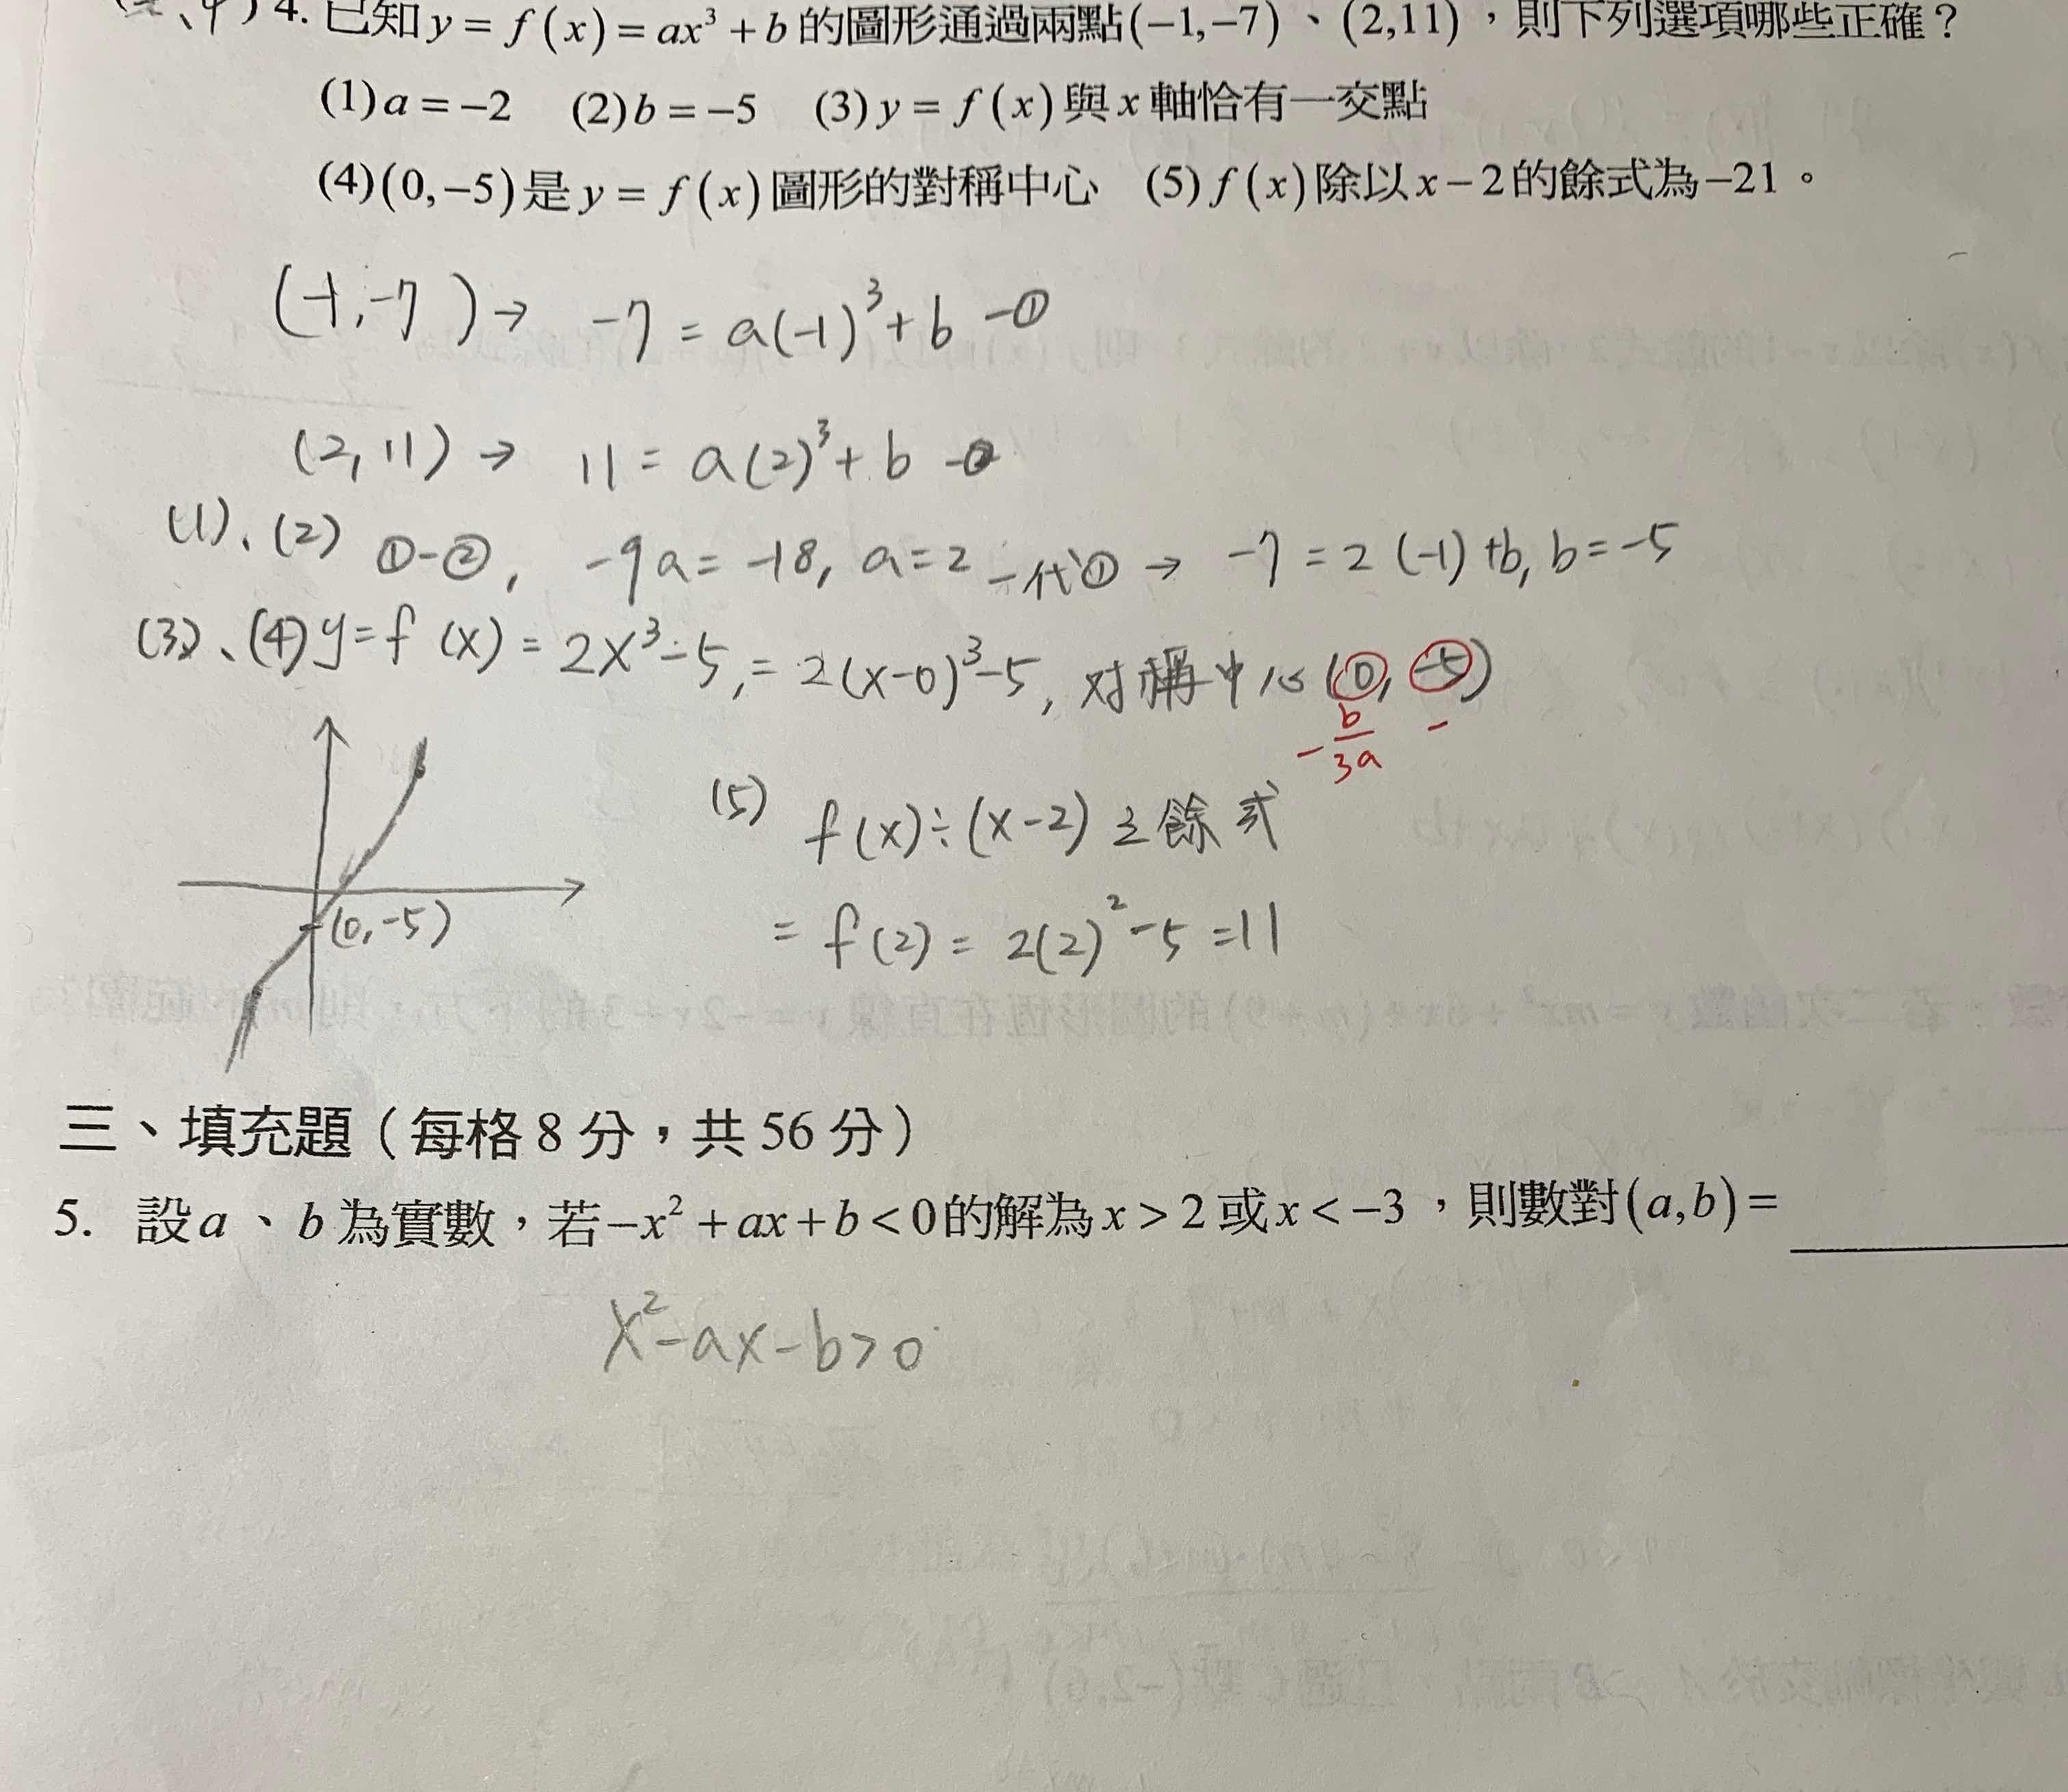 4. 已知 y = f(x) = ax³ + b 的圖形通過兩點(−1,−7)、(2,11),則下列選項哪些正確?
(1) a = −2 (2) b = −5 (3) y = f(x) 與 x 軸恰有一交點
(4) (0,−5) 是 y = f(x) 圖形的對稱中心 (5) f(x) 除以 x − 2 的餘式為 −21。
(-1,-7) → -7 = a(-1)³+b -①
(2,11) → 11 = a(2)³+b -②
(1)、(2) ①-②, -9a = -18, a = 2 -代① → -7 = 2(-1)+b, b = -5
(3)、(4) y = f(x) = 2x³-5, = 2(x-0)³-5, 对稱中心(0,-5)
-b/3a -
(0,-5)
(5) f(x)÷(x-2)之餘式
= f(2) = 2(2)²-5 = 11
三、填充題(每格 8 分,共 56 分)
5. 設 a、b 為實數,若 −x² + ax + b < 0 的解為 x > 2 或 x < −3,則數對(a,b) =
x²-ax-b>0